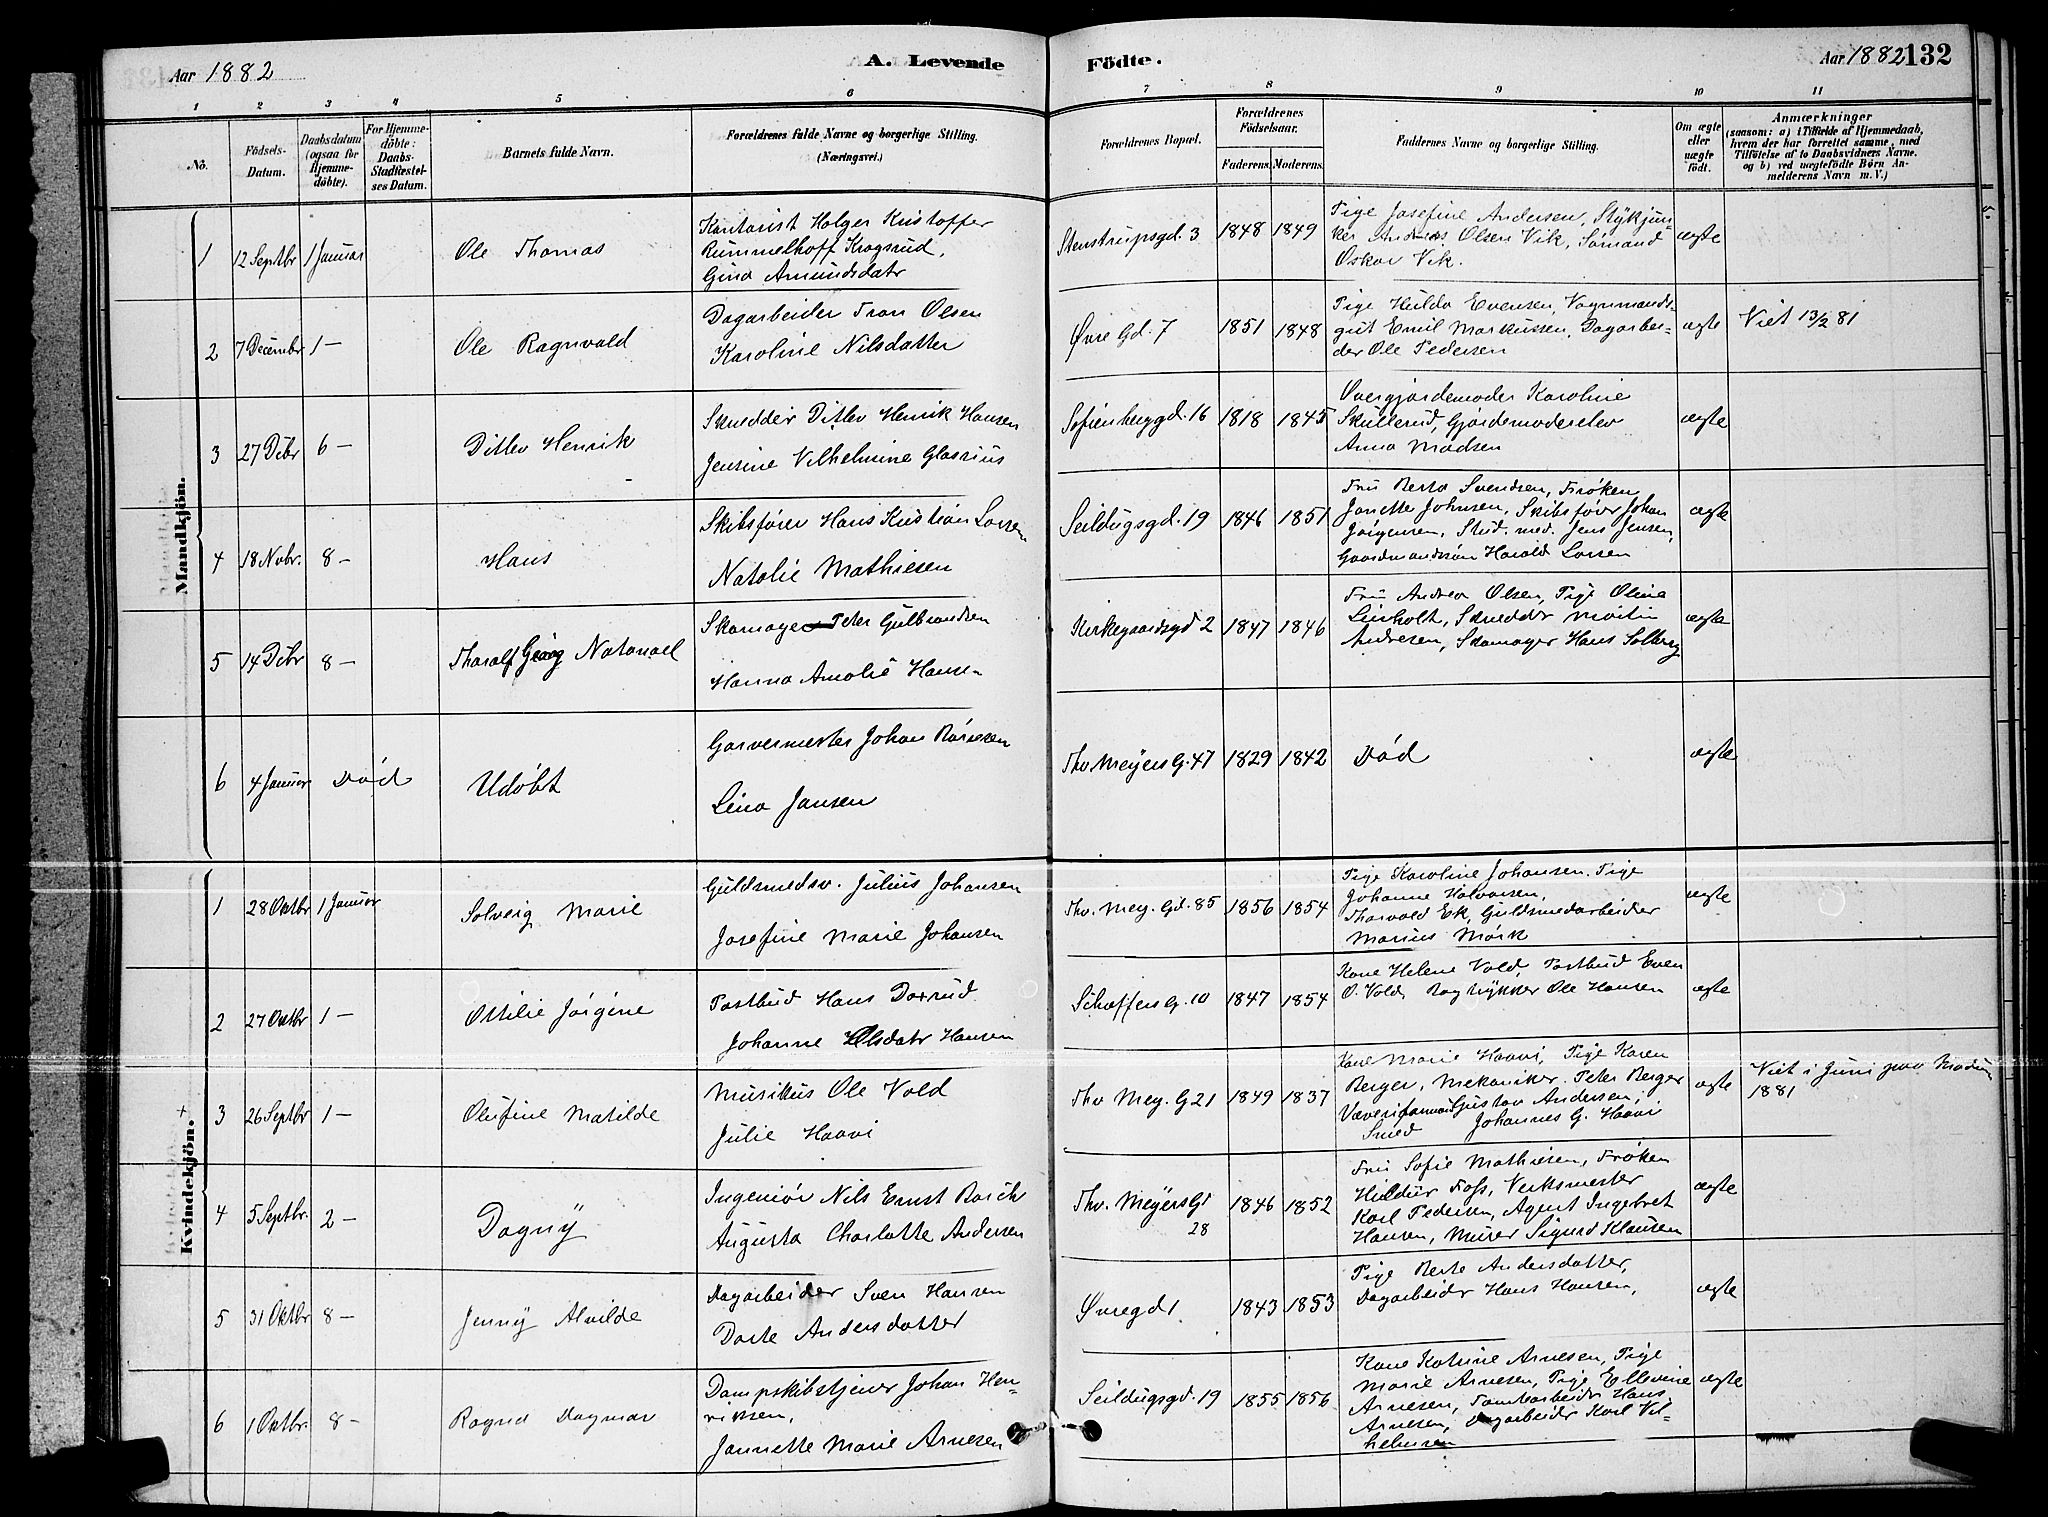 Aar 1882
A. Levende
Födte.
Aar 1882 132
1 2 3 4 5 6 7 8 9 10 11
No.
Födsels-
Datum.
Daabsdatum
(ogsaa for
Hjemme-
döbte).
For Hjemme-
döbte:
Daabs-
Stadfæstel-
ses Datum.
Barnets fulde Navn.
Forældrenes fulde Navne og borgerlige Stilling.
(Næringsvei.)
Forældrenes Bopæl.
Forældrenes
Födselsaar.
Faderens. Moderens.
Faddernes Navne og borgerlige Stilling.
Om ægte
eller
uægte
födt.
Anmærkninger
(saasom: a) i Tilfælde af Hjemmedaab,
hvem der har forrettet samme, med
Tilföielse af to Daabsvidners Navne.
og b) ved uægtefödte Börn An-
melderens Navn m. V.)
Mandkjön.
1 12 Septbr 1 Januar Ole Thomas
Kontorist Holger Kristoffer
Rummelhoff Krogsrud,
Gina Amundsdatr
Stenstrupsgd. 3 1848 1849
Pige Josefine Andersen, Stykjun-
ker Andreas Olsen Vik, Sömand
Oskar Vik.
ægte
2 7 Decembr 1 — Ole Ragnvald
Dagarbeider Tron Olsen
Karoline Nilsdatter
Øvre Gd. 7 1851 1848
Pige Hulda Evensen, Vognmands-
gut Emil Markussen, Dagarbei-
der Ole Pedersen
ægte
Viet 13/2 81
3 27 Dcbr 6 — Ditlev Henrik
Skrædder Ditlev Henrik Hansen
Jensine Vilhelmine Glasrius
Sofienberggd. 16 1818 1845
Overgjordemoder Karoline
Skullerud, Gjordemoderelev
Anna Madsen
ægte
4 18 Nobr. 8 — Hans
Skibsfører Hans Kristian Larsen
Natalie Mathiesen
Seildugsgd. 19 1846 1851
Fru Berta Svendsen, Frøken
Janette Johnsen, Skibsfører Johan
Jörgensen, Stud. med. Jens Jensen,
Gaardmandssön Harald Larsen
ægte
5 14 Dcbr 8 — Tharalf Georg Natanael
Skomager Peter Gulbrandsen
Hanna Amalie Hansen
Kirkegaardsgd 2 1847 1846
Fru Andrea Olsen, Pige Oline
Linholt, Skrædder Martin
Andresen, Skomager Hans Solberg
ægte
6 4 Januar Død Udøbt
Garvermester Johan
Lina Jansen
Thv. Meyers G. 47 1829 1842 Død ægte
Kvindekjön. +
1 28 Oktbr 1 Januar Solveig Marie
Guldsmedsv. Julius Johansen
Josefine Marie Johansen
Thv. Mey. Gd. 85 1856 1854
Pige Karoline Johansen. Pige
Johanne Halvorsen,
Thorvald Ek, Guldsmedarbeider
Marius Mørk
ægte
2 27 Oktbr 1 — Ottilie Jörgine
Postbud Hans Doxrud
Johanne Olsdatr Hansen
Schæffers G. 10 1847 1854
Kone Helene Vold, Postbud Even
O. Vold, Bogtrykker Ole Hansen
ægte
3 26 Septbr 1 — Olufine Matilde
Musikus Ole Vold
Julie Haavi
Thv. Mey. G 21 1849 1837
Kone Marie Haavi, Pige Karen
Berger, Mekaniker Peter Berger
Væveriformand Gustav Andersen,
Smed Johannes G. Haavi
ægte
Viet i Juni paa Modum
1881
4 5 Septbr. 2 — Dagny
Ingeniör Nils Ernst Borch
Augusta Charlotte Andersen
Thv. Meyers Gd 28 1846 1852
Fru Sofie Mathiesen, Frøken
Hildur Foss, Verksmester
Karl Pedersen, Agent Ingebret
Hansen, Murer Sigurd Klausen
ægte
5 31 Oktbr 8 — Jenny Alvilde
Dagarbeider Sven Hansen
Dorte Andersdatter
Øvregd 1 1843 1853
Pige Berte Andersdatter,
Dagarbeider Hans Hansen,
ægte
6 1 Oktbr. 8 — Ragna Dagmar
Dampskibstjener Johan Hen-
riksen,
Jannette Marie Arnesen
Seildugsgd. 19 1855 1856
Kone Katrine Arnesen, Pige
Marie Arnesen, Pige Ellevine
Arnesen, Tomtearbeider Hans
Arnesen, Dagarbeider Karl Vil-
helmsen
ægte